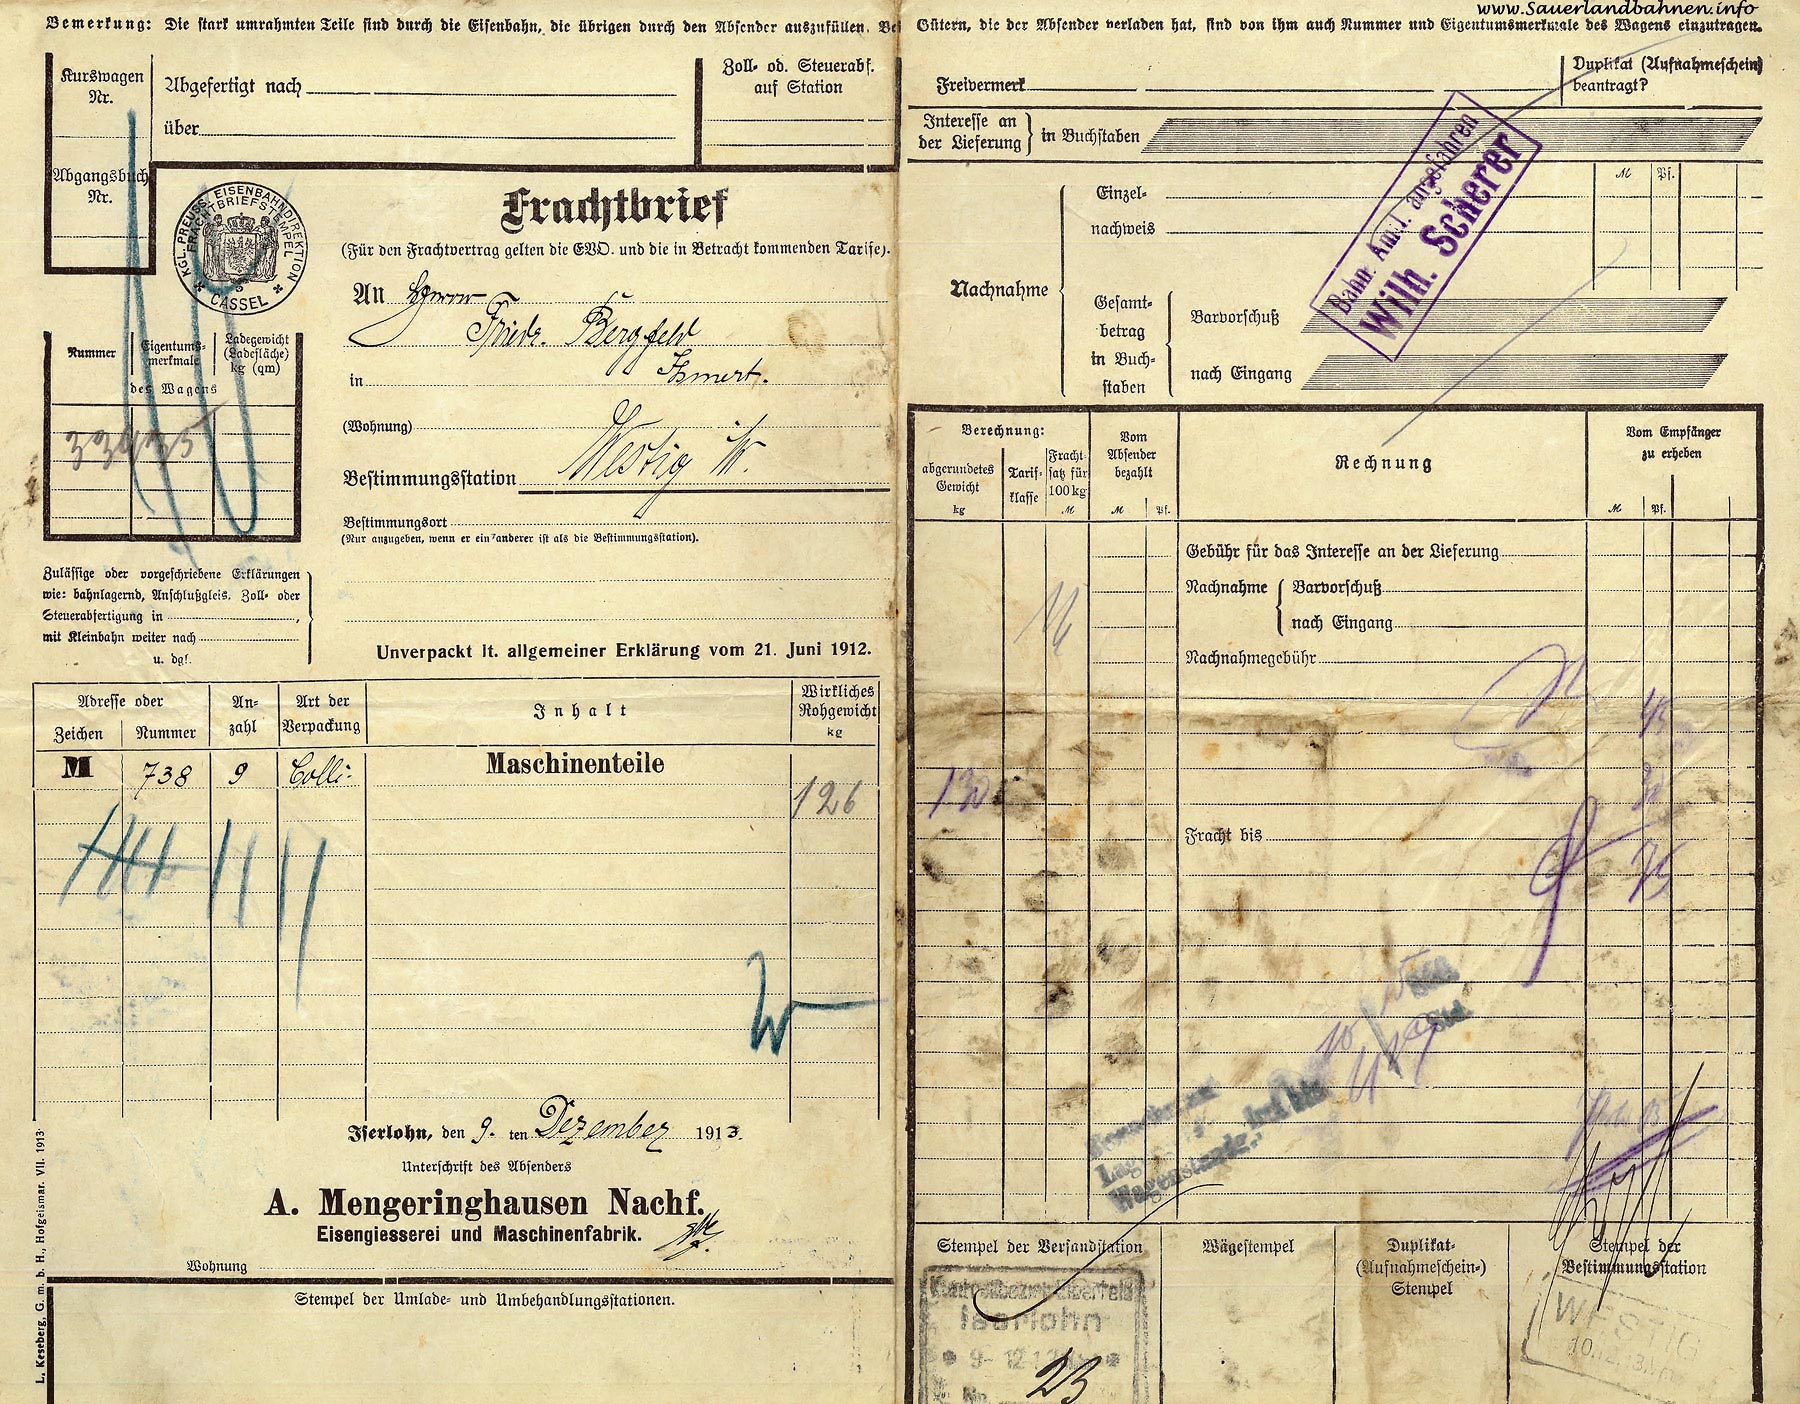 www.Sauerlandbahnen.info
Bemerkung: Die stark umrahmten Teile sind durch die Eisenbahn, die übrigen durch den Absender auszufüllen. Bei Gütern, die der Absender verladen hat, sind von ihm auch Nummer und Eigentumsmerkmale des Wagens einzutragen.
Kurswagen
Nr.
Abgefertigt nach
über
Zoll- od. Steuerabf.
auf Station
Abgangsbuch
Nr.
KGL. PREUSS. EISENBAHNDIREKTION
FRACHTBRIEFSTEMPEL
CASSEL
Frachtbrief
(Für den Frachtvertrag gelten die EVO. und die in Betracht kommenden Tarife).
An Herrn
Friedr. Bergfeld
in Ihmert.
(Wohnung)
Bestimmungsstation Westig W.
Bestimmungsort
(Nur anzugeben, wenn er ein anderer ist als die Bestimmungsstation).
Nummer
Eigentums-
merkmale
Ladegewicht
(Ladefläche)
kg (qm)
des Wagens
Zulässige oder vorgeschriebene Erklärungen
wie: bahnlagernd, Anschlußgleis, Zoll- oder
Steuerabfertigung in
mit Kleinbahn weiter nach
u. dgl.
Unverpackt lt. allgemeiner Erklärung vom 21. Juni 1912.
Adresse oder
Zeichen
Nummer
An-
zahl
Art der
Verpackung
Inhalt
Wirkliches
Rohgewicht
kg
M 738 9 Colli. Maschinenteile
126
Iserlohn, den 9. ten Dezember 1913.
Unterschrift des Absenders
A. Mengeringhausen Nachf.
Eisengiesserei und Maschinenfabrik.
Wohnung
Stempel der Umlade- und Umbehandlungsstationen.
L. Keseberg, G. m. b. H., Hofgeismar. VII. 1913
Freivermerk
Duplikat (Aufnahmeschein)
beantragt?
Interesse an
der Lieferung
in Buchstaben
Bahn. Amtl. angefahren
Wilh. Scherer
Nachnahme
Einzel-
nachweis
M Pf.
Gesamt-
betrag
in Buch-
staben
Barvorschuß
nach Eingang
Berechnung:
abgerundetes
Gewicht
kg
Tarif-
klasse
Fracht-
satz für
100 kg
M
Vom
Absender
bezahlt
M Pf.
Rechnung
Vom Empfänger
zu erheben
M Pf.
Gebühr für das Interesse an der Lieferung
Nachnahme
Barvorschuß
nach Eingang
Nachnahmegebühr
45
130
30
Fracht bis
75
Stempel der Versandstation
Wägestempel
Duplikat-
(Aufnahmeschein-)
Stempel
Stempel der
Bestimmungsstation
Iserlohn
23
WESTIG